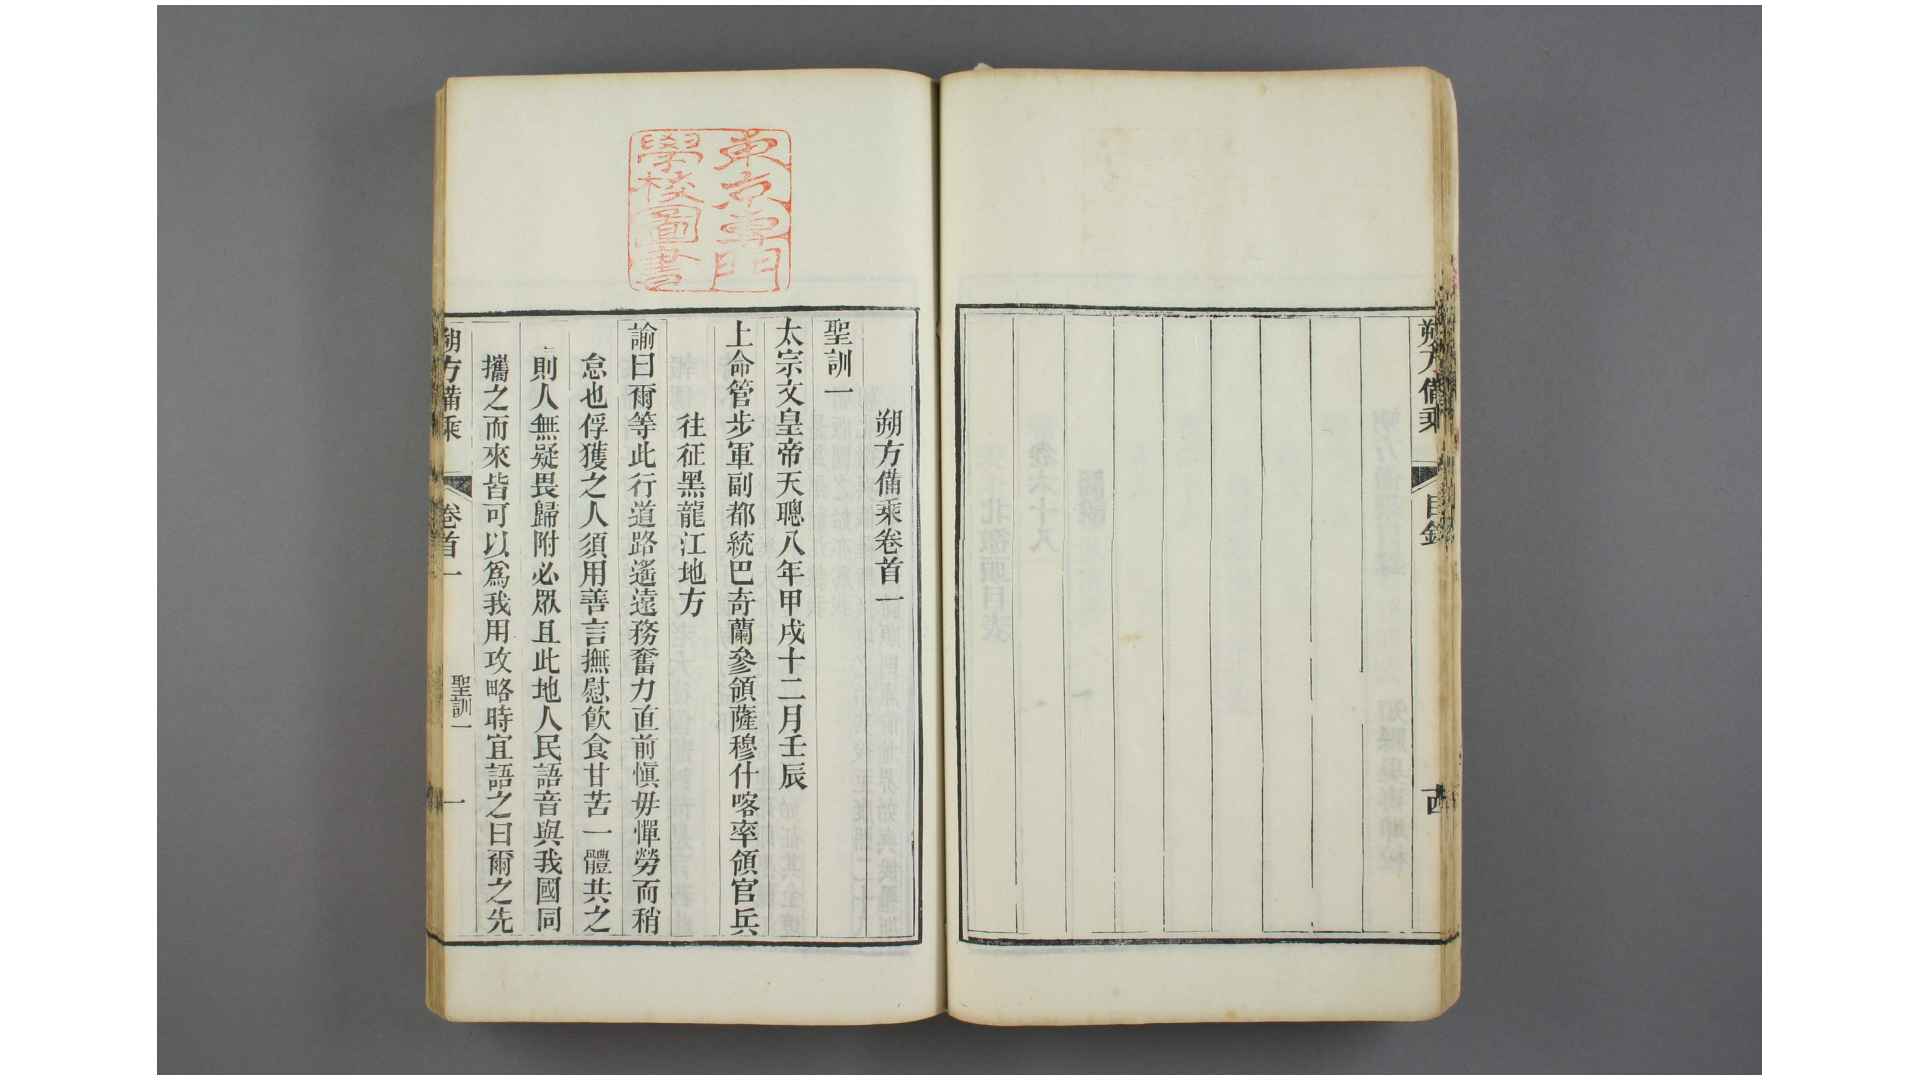 朔方備乘
目錄
東京專門
學校圖書
朔方備乘卷首一
聖訓一
太宗文皇帝天聰八年甲戌十二月壬辰
上命管步軍副都統巴奇蘭參領薩穆什喀率領官兵
往征黑龍江地方
諭曰爾等此行道路遙遠務奮力直前愼毋憚勞而稍
怠也俘獲之人須用善言撫慰飮食甘苦一體共之
則人無疑畏歸附必眾且此地人民語音與我國同
攜之而來皆可以爲我用攻略時宜語之曰爾之先
朔方備乘
卷首一
聖訓一
一